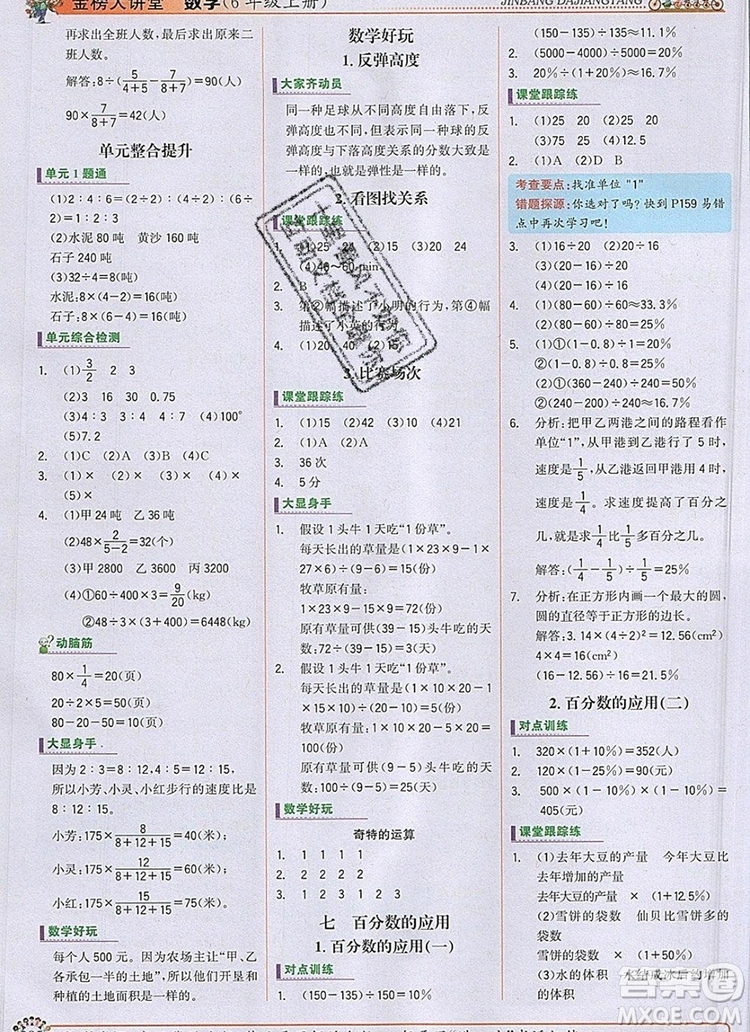 金榜大讲堂 数学(6年级上册)
JINBANG DAJIANGTANG
再求出全班人数,最后求出女生人数。
解答:8÷(5/(4+5)-7/(8+7))=90(人)
90×7/(8+7)=42(人)
单元整合提升
单元1题通
(1)2∶4∶6=(2÷2)∶(4÷2)∶
(6÷2)=1∶2∶3
(2)水泥80吨 黄沙160吨
石子240吨
(3)32÷4=8(吨)
水泥:8×2=16(吨)
石子:8×(6-4)=16(吨)
单元综合检测
1. (1)3/2 2 3
(2)3 16 15 30
(3)4∶3 4∶7 (4)100°
2. (1)C (2)A (3)B
3. (1)× (2)× (3)× (4)×
4. (1)甲24吨 乙36吨
(2)48×2/(5-2)=32(吨)
(3)甲2800 乙3600 丙3200
(4)①60÷400×3=9/20(kg)
②48÷3×(60+400+3)=6448(kg)
动脑筋
80×1/4=20(页)
20÷2×5=50(页)
80-20-50=10(页)
大显身手
因为2∶3=8∶12,4∶5=12∶15,
所以小芳、小灵、小红步行速度比是
8∶12∶15。
小芳:175×8/(8+12+15)=40(米);
小灵:175×12/(8+12+15)=60(米);
小红:175×15/(8+12+15)=75(米)。
数学好玩
每个人500元。因为农场主让“甲、乙
各承包一半的土地”,所以他们开垦和
种植的土地面积是一样大的。
数学好玩
1.反弹高度
大家齐动员
同一种足球从不同高度自由落下,反
弹高度不同。但是同一种球的反弹高
度与下落高度关系的分数大致是一样
的,也就是弹性是一样的。
2.看图找关系
课堂跟踪练
(4)46~60 min
2. B
3. 第②幅描述了小明的行为,第④幅
描述了小英的行为。
3.比赛场次
课堂跟踪练
1. (1)15 (2)42 (3)10 (4)21
2. (1)A (2)A
3. 36次
4. 5分
大显身手
1. 假设1头牛1天吃“1份草”。
每天长出的草量是(1×23×9-1×
27×6)÷(9-6)=15(份)
牧草原有量:
1×23×9-15×9=72(份)
原有牧草量可以供21头牛吃的天
数:72÷(39-15)=3(天)
2. 假设1头牛1天吃“1份草”。
每天长出的草量是(1×10×20-1×
15×10)÷(20-10)=5(份)
牧草原有量:1×10×20-5×20=
100(份)
原有牧草量可以供25头牛吃的天
数:100÷(25-5)=5(天)
数学好玩
奇特的运算
1. 1 1 1 1
2. 1 2 3 4
3. 1 121 12321 1234321
七 百分数的应用
1.百分数的应用(一)
对点训练
1. (150-135)÷150=10%
(150-135)÷135≈11.1%
2. (5000-4000)÷5000=20%
3. 20%÷(1+20%)≈16.7%
课堂跟踪练
1. (1)25 20 (2)25 20
(3)75 25 (4)12.5
2. (1)A (2)B (3)D
考查要点:找准单位“1”
错题探源:你选对了吗?快到P159易错
点中再次学习吧!
3. (1)16÷20 (2)20÷16
(3)(20-16)÷20
(4)(20-16)÷16
4. (1)20÷(80-20)≈33.3%
5. (1)①(1-0.8)÷1=20%
②(1-0.8)÷0.8=25%
(2)①(240-200)÷200=20%
②(240-200)÷240≈16.7%
6. 分析:把甲乙两港之间的路程看作
单位“1”,从甲港到乙港行了5时,
速度是1/5;从乙港到甲港行了4时,
速度是1/4。求速度提高了百分之
几,就是求1/4比1/5多百分之几。
解答:(1/4-1/5)÷1/5=25%
7. 分析:在正方形内画一个最大的圆,
圆的直径等于正方形的边长。
解答:3.14×(4÷2)²=12.56(cm²)
4×4=16(cm²)
(16-12.56)÷16=21.5%
2.百分数的应用(二)
对点训练
1. 320×(1+10%)=352(人)
2. 120×(1-25%)=90(元)
3. 500×(1-10%)×(1-10%)=
405(元)
课堂跟踪练
1. (1)去年大豆的产量 今年大豆比
去年增加的产量
去年大豆的产量 × (1+12.5%)
(2)雪饼的袋数 仙贝比雪饼多的袋数
雪饼的袋数 × (1+60%)
(3)水的体积 水结成冰后的增加
的体积 水的体积 ×